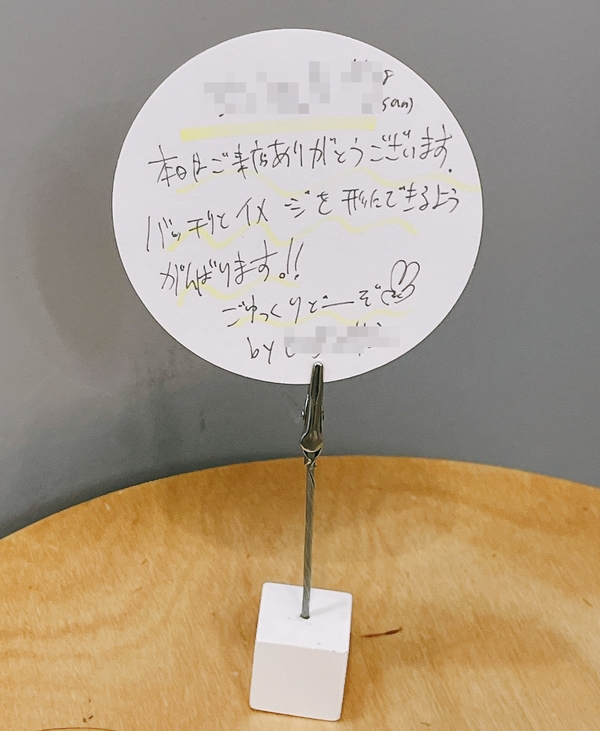 san)
本日はご来店ありがとうございます.
バッチリとイメージを形にできるよう
がんばります。!!
ごゆっくりどーぞ
by